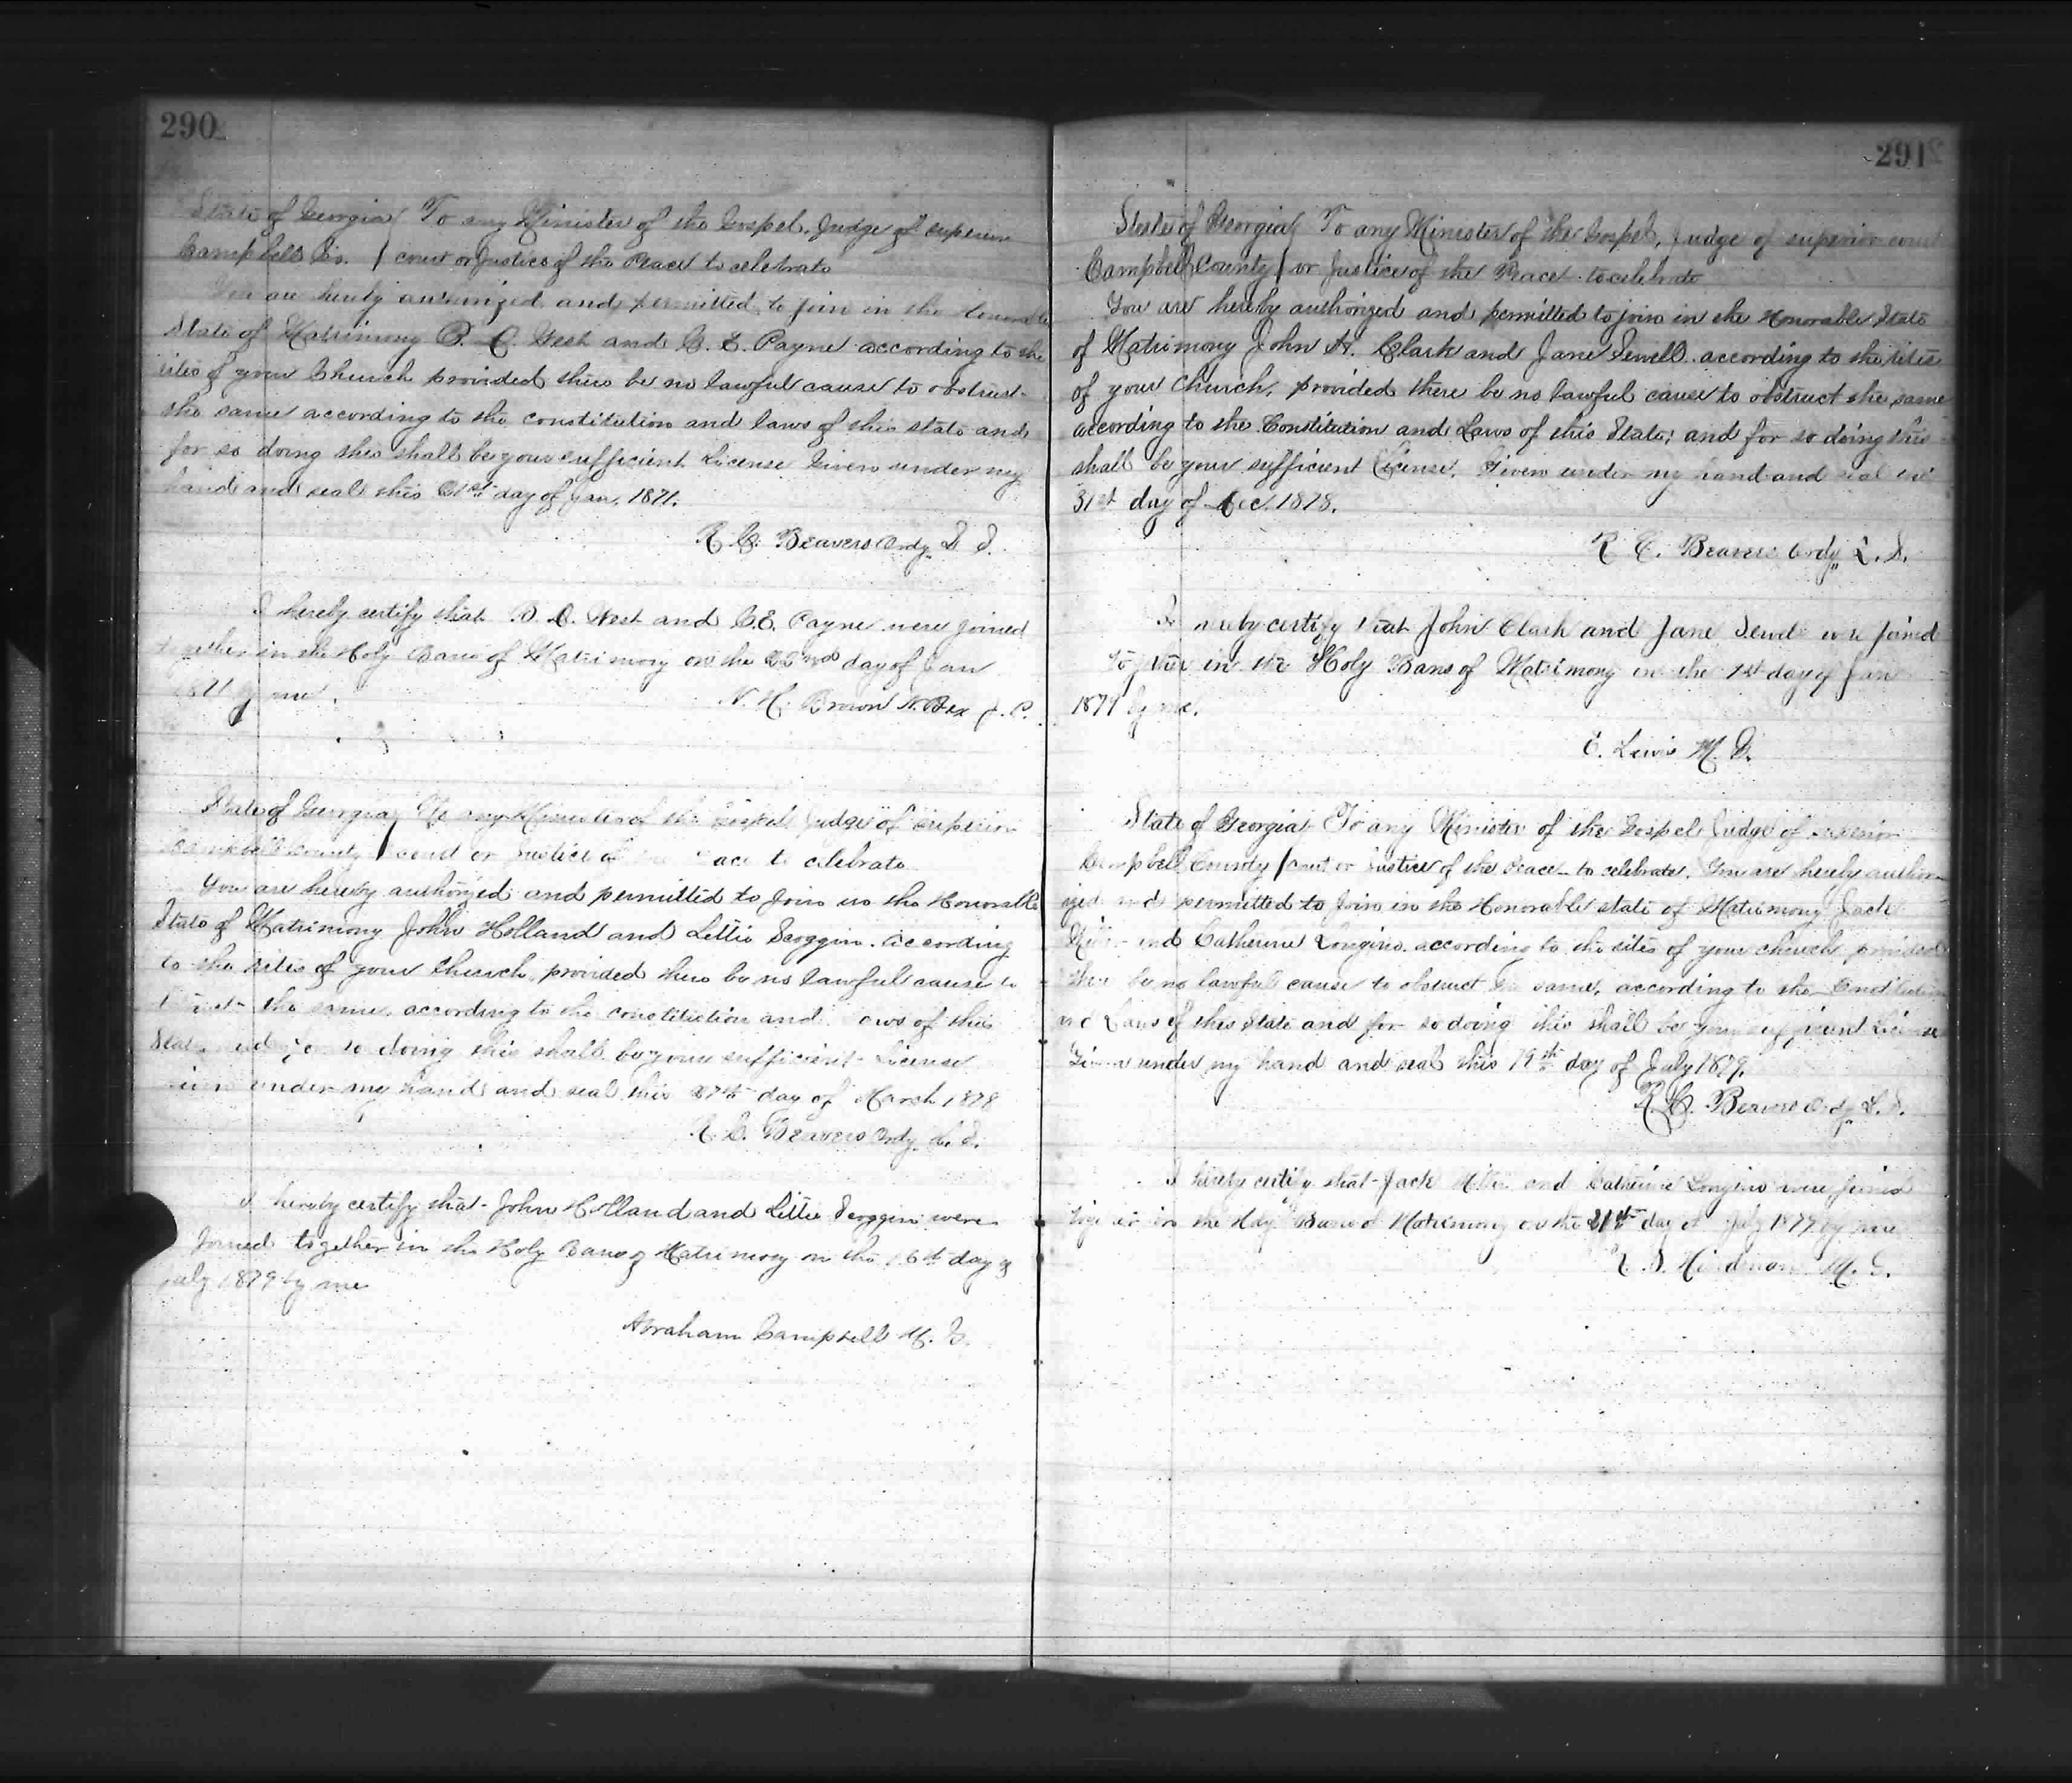 290
State of Georgia } To any Minister of the Gospel, Judge of superior
Campbell Co. } court or Justice of the Peace to celebrate
You are hereby authorized and permitted to join in the Honorable
State of Matrimony B. C. West and C. E. Payne according to the
rites of your Church provided there be no lawful cause to obstruct
the same according to the constitution and laws of this state and
for so doing this shall be your sufficient License Given under my
hand and seal this 21st day of Jan, 1871.
R. C. Beavers Ordy L. S.
I hereby certify that West and C. E. Payne were joined
together in the Holy Bans of Matrimony on the 22nd day of Jan
by me.
N. H. Brown J. P.
State of Georgia } To any Minister of the Gospel Judge of superior
Campbell County } court or Justice of Peace to celebrate
You are hereby authorized and permitted to join in the Honorable
State of Matrimony John Holland and Lettie Scoggin. according
to the rites of your Church, provided there be no lawful cause to
the same, according to the constitution and laws of this
State and for so doing this shall be your sufficient License
Given under my hand and seal this 27th day of March 1878
R. C. Beavers Ordy L. S.
I hereby certify that John Holland and Lettie Scoggin were
Joined together in the Holy Bans of Matrimony on the 16th day of
July 1879 by me
Abraham Campbell M. G.
291
State of Georgia } To any Minister of the Gospel, Judge of superior court
Campbell County } or Justice of the Peace to celebrate
You are hereby authorized and permitted to join in the Honorable State
of Matrimony John H. Clark and Jane Sewell according to the rites
of your Church, provided there be no lawful cause to obstruct the same
according to the Constitution and Laws of this State; and for so doing this
shall be your sufficient License. Given under my hand and seal
31st day of Dec. 1878.
R. C. Beavers Ordy L. S.
I hereby certify that John Clark and Jane Sewell were joined
together in the Holy Bans of Matrimony on the 1st day of Jan
1879 by me.
E. Lewis M. G.
State of Georgia } To any Minister of the Gospel Judge of superior
Campbell County } court or Justice of the Peace to celebrate. You are hereby author-
ized and permitted to join in the Honorable state of Matrimony Jack
and Catherine Longino. according to the rites of your church, provided
there be no lawful cause to obstruct the same, according to the Constitution
and Laws of this State and for so doing this shall be your sufficient License
Given under my hand and seal this 19th day of July 1879.
R. C. Beavers Ordy L. S.
I hereby certify that Jack and Catherine Longino were joined
together in the Holy Bans of Matrimony on the 21st day of July 1879 by me
M. G.